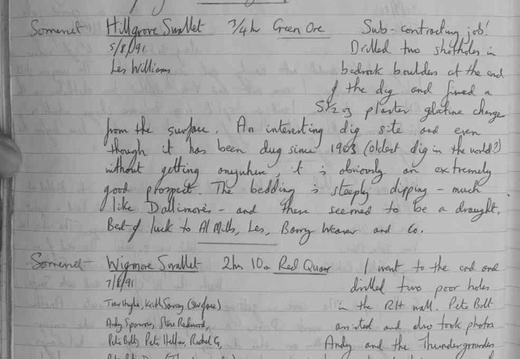 Somerset Hillgrove Swallet 3/4h Green Ore Sub-contracting job!
5/8/91 Drilled two shotholes in
Les Williams bedrock boulder at the end
of the dig and fired a
5½oz plaster gelatine charge
from the surface. An interesting dig site and even
though it has been dug since 1903 (oldest dig in the world?)
without getting anywhere, it is obviously an extremely
good prospect. The bedding is steeply dipping - much
like Dallimores - and there seemed to be a draught.
Best of luck to Al Mills, Les, Barry Weaver and Co.
Somerset Wigmore Swallet 2hrs 10m Red Quar I went to the end and
7/8/91 drilled two poor holes
Keith Savory (Surface) in the RH wall. Pete Bolt
Andy Sparrow, Steve Redwood, assisted and also took photos
Pete Bolt, Pete Hellier, Rachel G, Andy and the Thundergrounders